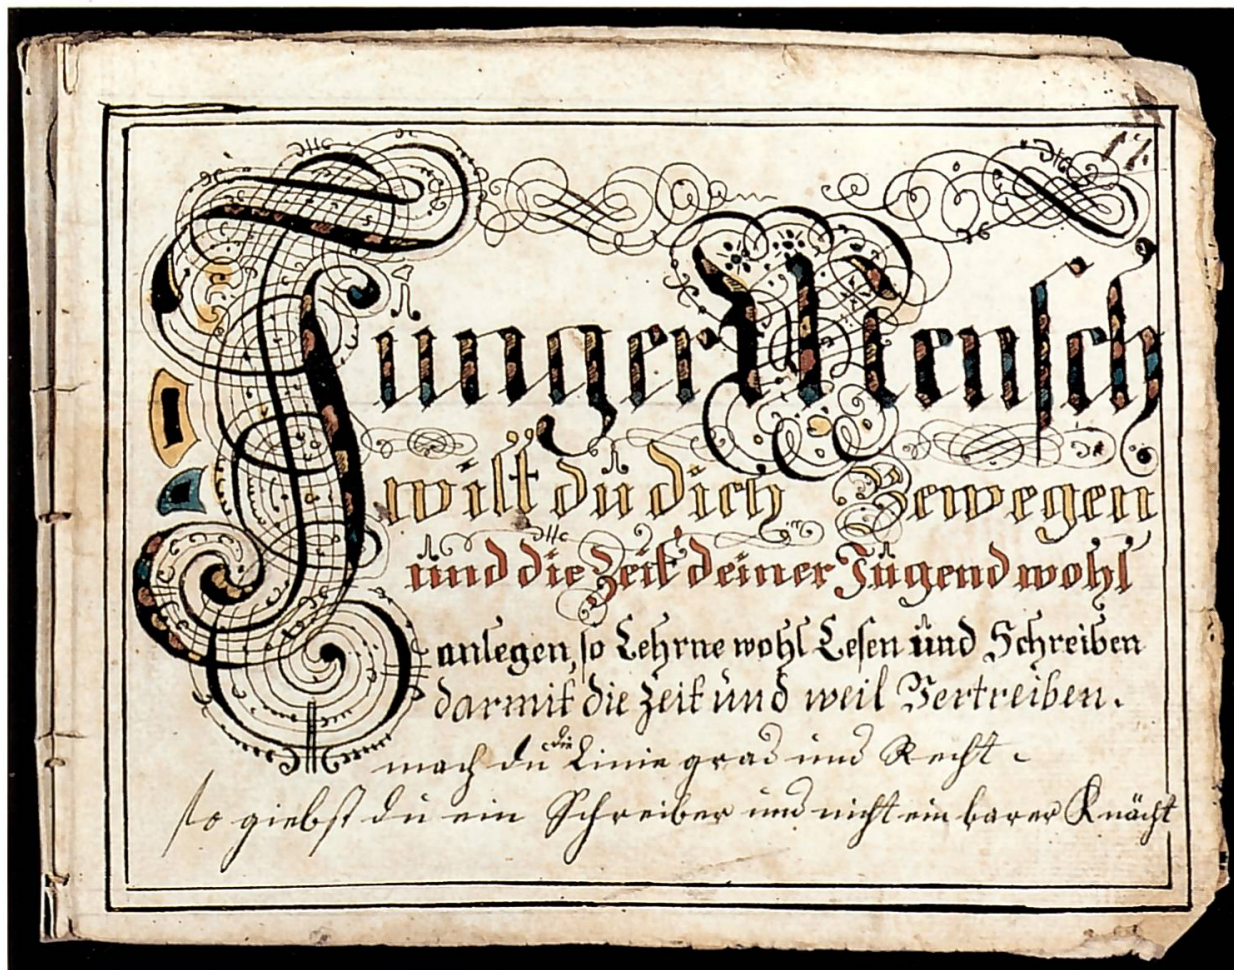 Jünger Mensch
wilt dü dich Bewegen
ünd die Zeit deiner Jügend wohl
anlegen, so Lehrne wohl Lesen ünd Schreiben
darmit die Zeit ünd weil Vertreiben.
mach dü die Linie grad und Recht
so giebst dü ein Schreiber und nicht ein barer Knächt